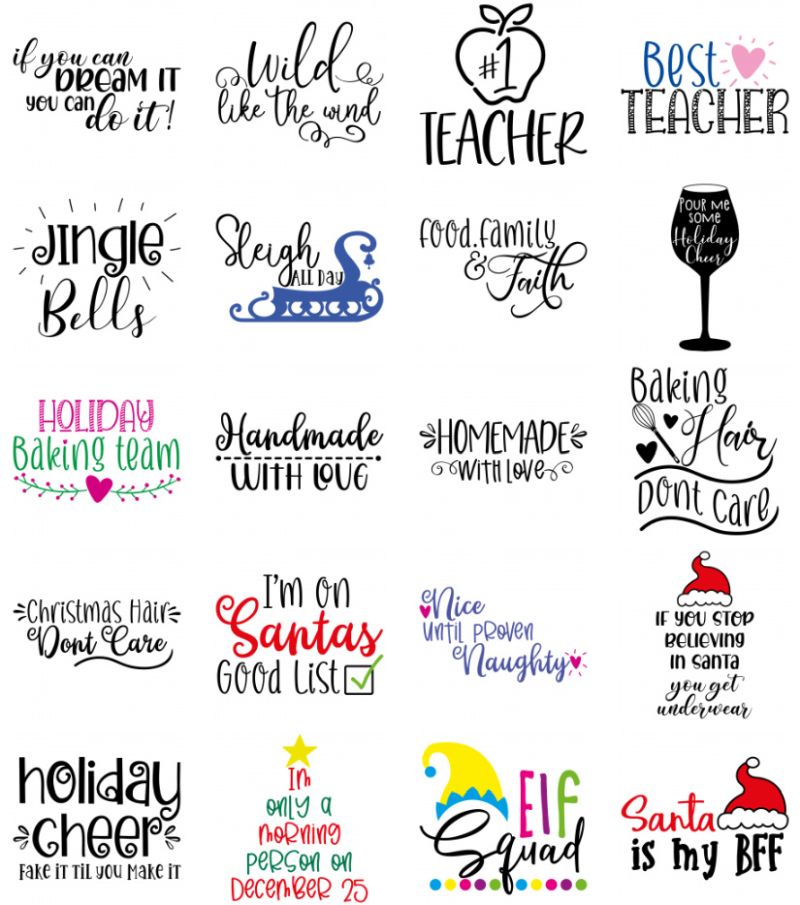 if you can
DREAM IT
you can
do it!
Wild
like the wind
#1
TEACHER
Best
TEACHER
Jingle
Bells
Sleigh
ALL DAY
food.family
& Faith
POUR ME
SOME
Holiday
Cheer
HOLIDAY
Baking team
Handmade
WITH LOVE
HOMEMADE
with Love
Baking
Hair
Dont Care
Christmas Hair
Dont Care
I'm on
Santas
Good List
Nice
until proven
Naughty
IF YOU STOP
BELIEVING
IN SANTA
you get
underwear
holiday
cheer
Fake it til you make it
Im
only a
morning
person on
December 25
Elf
Squad
Santa
is my BFF